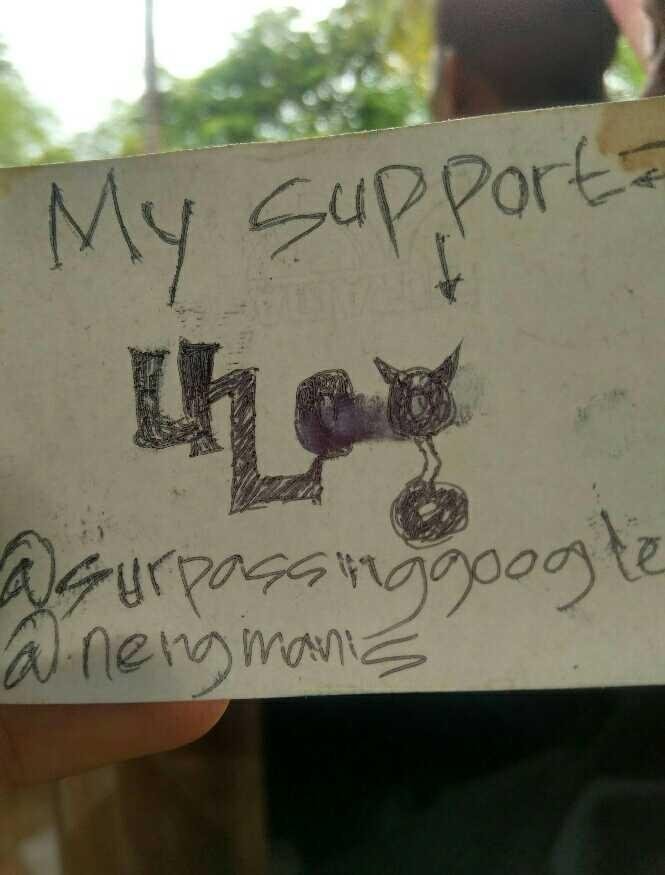 My support
@surpassinggoogle
@nengmanis